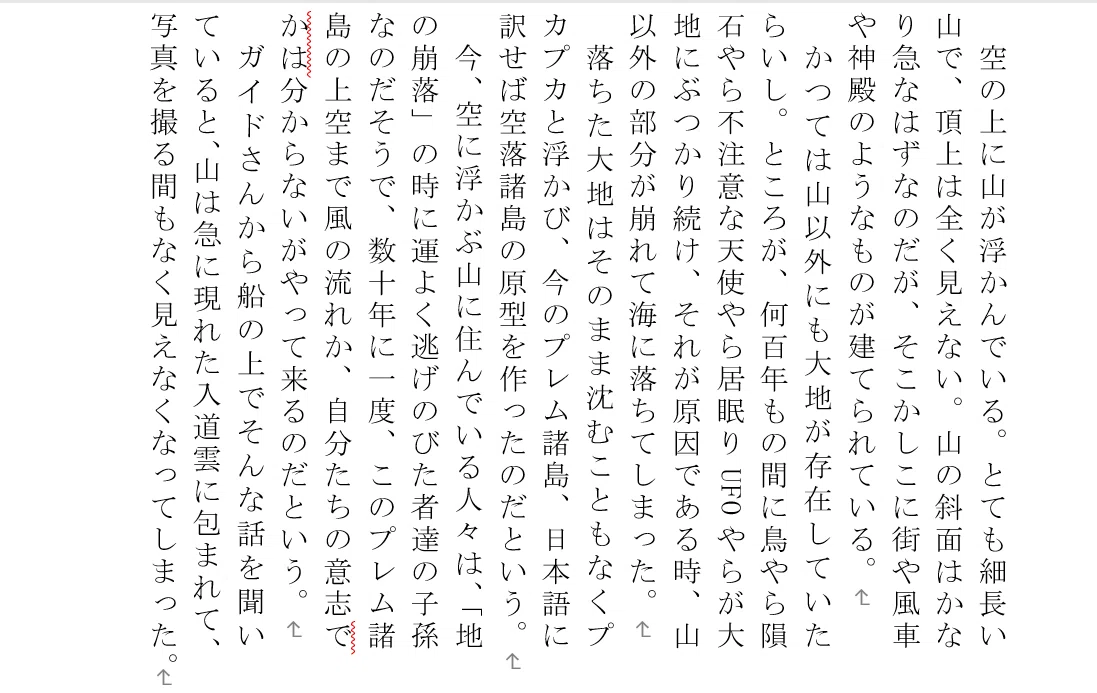 空の上に山が浮かんでいる。とても細長い
山で、頂上は全く見えない。山の斜面はかな
り急なはずなのだが、そこかしこに街や風車
や神殿のようなものが建てられている。
　かつては山以外にも大地が存在していた
らいし。ところが、何百年もの間に鳥やら隕
石やら不注意な天使やら居眠りUFOやらが大
地にぶつかり続け、それが原因である時、山
以外の部分が崩れて海に落ちてしまった。
　落ちた大地はそのまま沈むこともなくプ
カプカと浮かび、今のプレム諸島、日本語に
訳せば空落諸島の原型を作ったのだという。
　今、空に浮かぶ山に住んでいる人々は、「地
の崩落」の時に運よく逃げのびた者達の子孫
なのだそうで、数十年に一度、このプレム諸
島の上空まで風の流れか、自分たちの意志で
かは分からないがやって来るのだという。
　ガイドさんから船の上でそんな話を聞い
ていると、山は急に現れた入道雲に包まれて、
写真を撮る間もなく見えなくなってしまった。